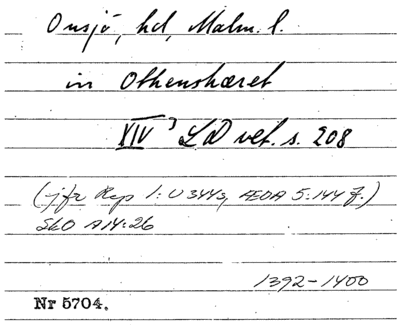 Onsjö, hd, Malm. l.
in Othenshæret
XIV³ LD vet. s. 208
(jfr Rep 1: U 3443, ÆDA 5:144 f.)
SkO A14:26
1392-1400
Nr 5704.